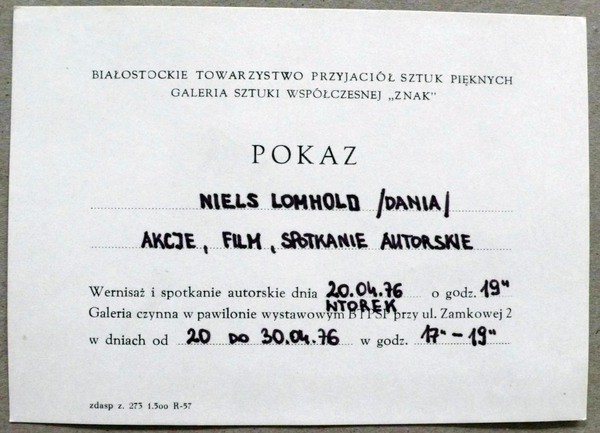 BIAŁOSTOCKIE TOWARZYSTWO PRZYJACIÓŁ SZTUK PIĘKNYCH
GALERIA SZTUKI WSPÓŁCZESNEJ „ZNAK”
POKAZ
NIELS LOMHOLD /DANIA/
AKCJE, FILM, SPOTKANIE AUTORSKIE
Wernisaż i spotkanie autorskie dnia 20.04.76 o godz. 19"
WTOREK
Galeria czynna w pawilonie wystawowym BTPSP przy ul. Zamkowej 2
w dniach od 20 DO 30.04.76 w godz. 17" – 19"
zdasp z. 273 1.500 R-57